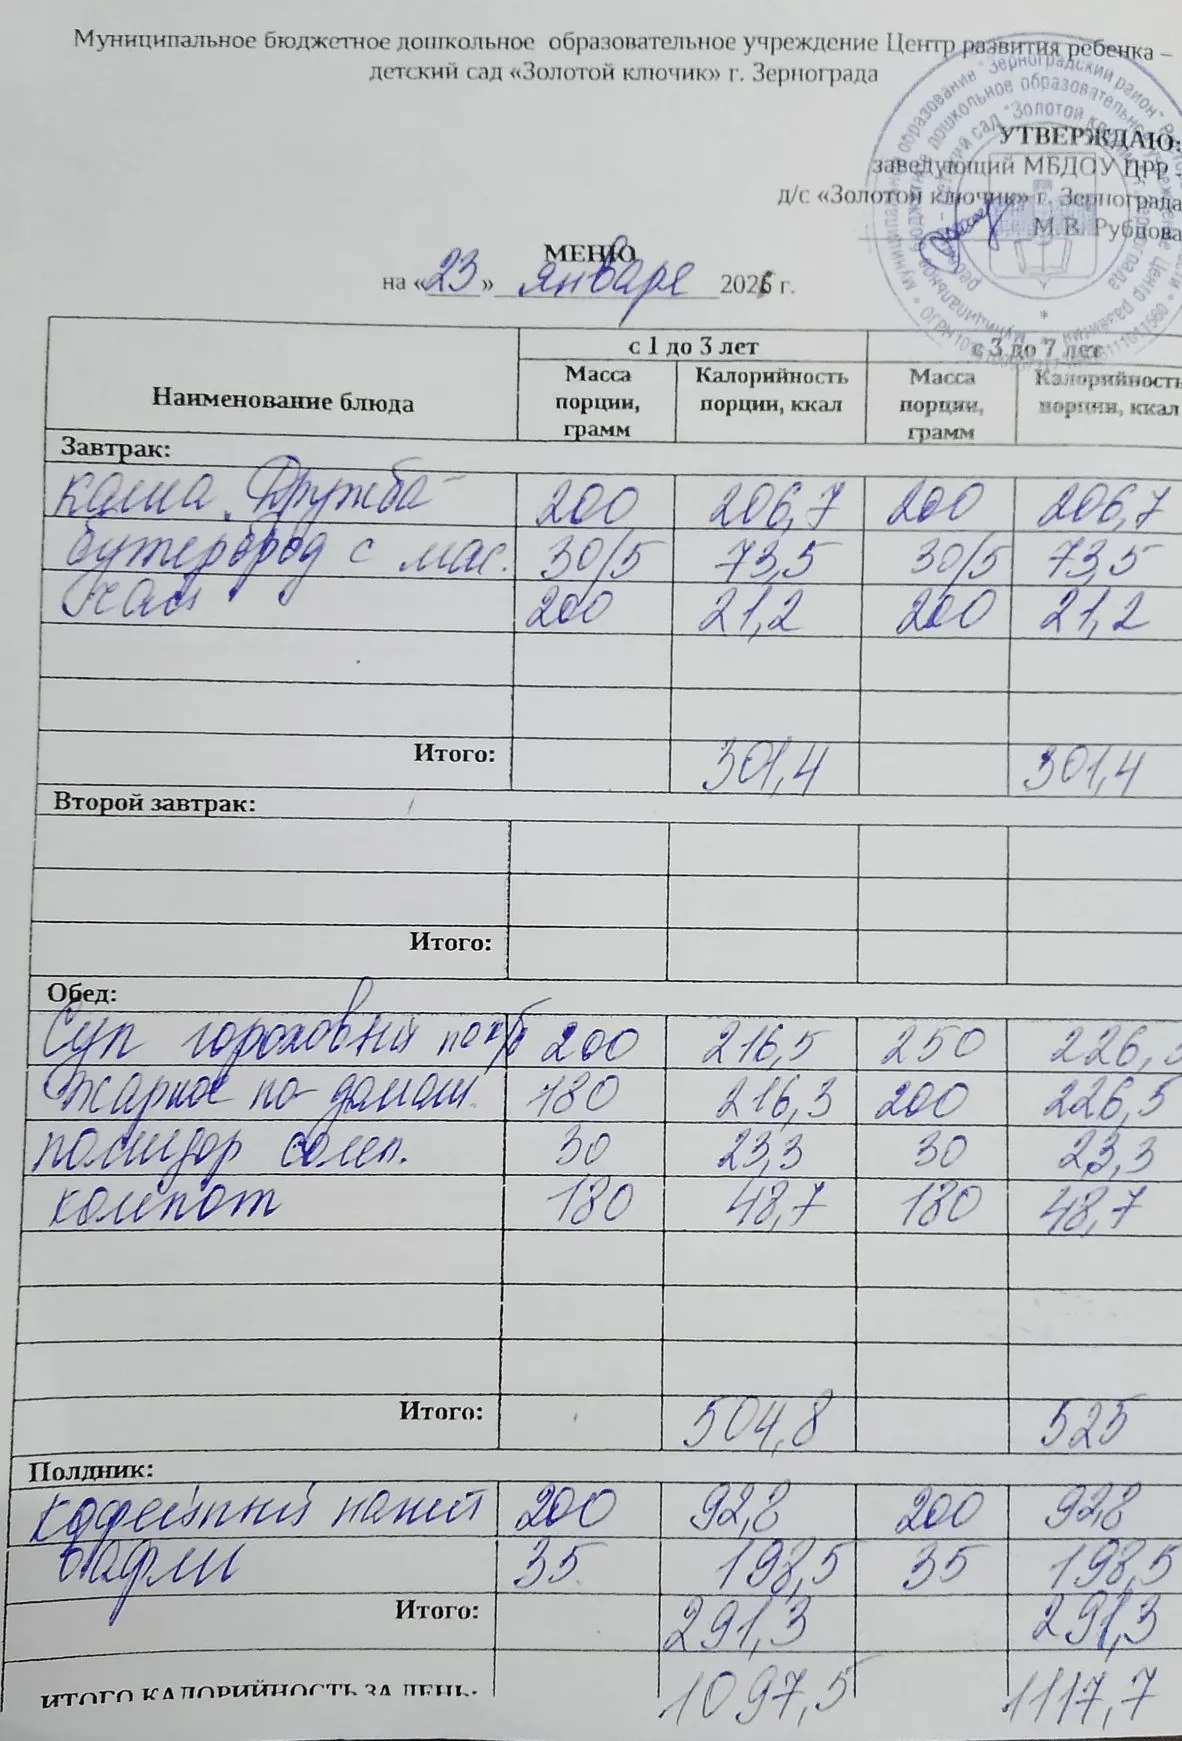 Муниципальное бюджетное дошкольное образовательное учреждение Центр развития ребенка –
детский сад «Золотой ключик» г. Зернограда
УТВЕРЖДАЮ:
заведующий МБДОУ ЦРР -
д/с «Золотой ключик» г. Зернограда
М.В. Рубцова
МЕНЮ
на «23» января 2026 г.
Наименование блюда с 1 до 3 лет с 3 до 7 лет
Масса порции, грамм Калорийность порции, ккал Масса порции, грамм Калорийность порции, ккал
Завтрак:
каша "Дружба" 200 206,7 200 206,7
бутерброд с мас. 30/5 73,5 30/5 73,5
Чай 200 21,2 200 21,2
Итого: 301,4 301,4
Второй завтрак:
Итого:
Обед:
Суп гороховый 200 216,5 250 226,
Жаркое по-домаш. 180 216,3 200 226,5
помидор солен. 30 23,3 30 23,3
компот 180 48,7 180 48,7
Итого: 504,8 525
Полдник:
кофейный напит 200 92,8 200 92,8
вафли 35 198,5 35 198,5
Итого: 291,3 291,3
ИТОГО КАЛОРИЙНОСТЬ ЗА ДЕНЬ: 1097,5 1117,7